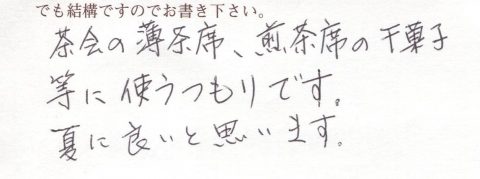 でも結構ですのでお書き下さい。
茶会の薄茶席、煎茶席の干菓子
等に使うつもりです。
夏に良いと思います。